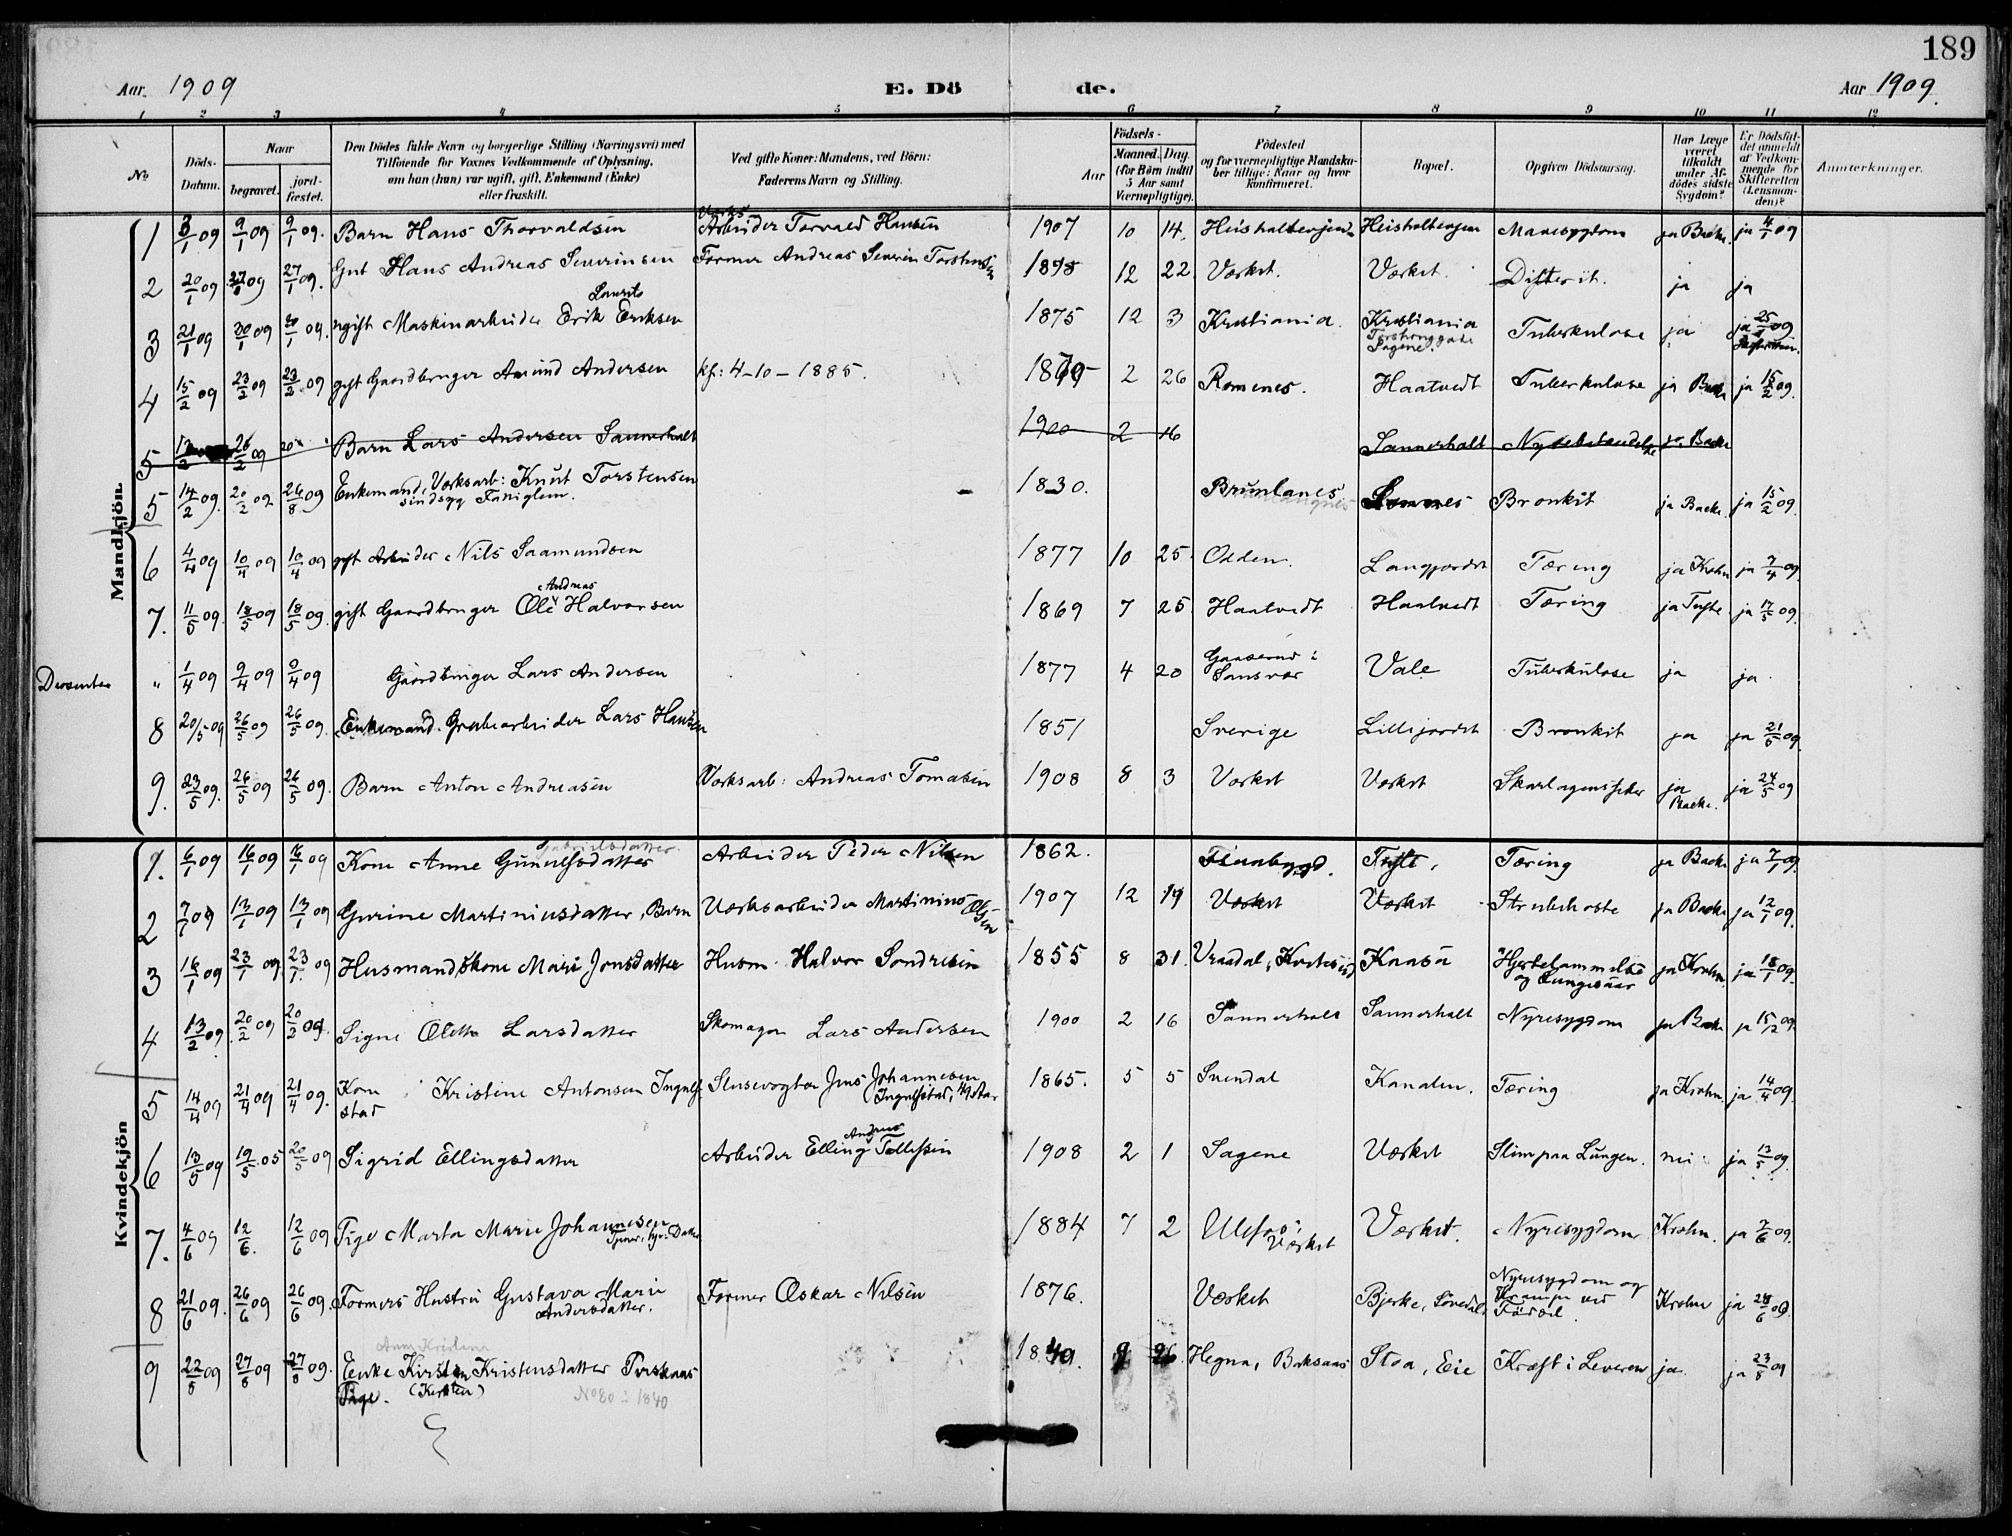 189
Aar. 1909 E. Dö de. Aar 1909.
1 2 3 4 5 6 7 8 9 10 11 12
No. Döds-Datum. Naar begravet. jord-fæstet. Den Dödes fulde Navn og borgerlige Stilling (Næringsvei) med Tilföiende for Voxnes Vedkommende af Oplysning, om han (hun) var ugift, gift, Enkemand (Enke) eller fraskilt. Ved gifte Koner: Mandens, ved Börn: Faderens Navn og Stilling. Aar Födsels- Maaned. Dag. (for Börn indtil 5 Aar samt Værnepligtige). Födested og for værnepligtige Mandskaber tillige: Naar og hvor konfirmeret. Bopæl. Opgiven Dödsaarsag. Har Læge været tilkaldt under Afdödes sidste Sygdom? Er Dödsfaldet anmeldt af Vedkommende for Skifteretten (Lensmanden)? Anmerkninger.
Mandkjön
1 3/1 09 9/1 09 9/1 09. Barn Hans Thorvaldsen Værks Arbeider Torvald Hansen 1907 10 14. Heisholtenjen Maresygdom ja Backe ja 4/1 09
2 20/1 09 27/1 09 27/1 09. Gut Hans Andreas Severinsen Former Andreas Severin Torstensen 1898 12 22 Værket. Værket. Difterit. ja ja
3 21/1 09 30/1 09 30/1 09. ugift Maskinarbeider Erik Laurits Eriksen 1875 12 3 Kristiania. Kristiania Sagene. Tuberkulose ja ja 25/1 09
4 15/2 09 23/2 09 23/2 09 gift Gaardbruger Amund Andersen kf: 4-10-1885. 1870 2 26 Romenes. Haatvedt Tuberkulose ja Backe ja 15/2 09.
5 13/2 20/2 09 Barn Lars Andersen Sannerholt 1900 2 16 Sannerholt ja, Backe
5 14/2 09. 20/2 09 26/8 09 Enkemand, Værksarb: Knut Torstensen sindsyg 1830. Brunlanes Bronkit ja Backe. ja 15/2 09.
6 4/4 09 10/4 09 10/4 09 gift Arbeider Nils Saamundsen 1877 10 25. Olden. Langjordet Tæring ja Krohn ja 7/4 09.
7. 11/5 09. 18/5 09 18/5 09. gift Gaardbruger Ole Andreas Halvorsen 1869 7 25 Haatvedt Haatvedt Tæring ja Tufte. ja 17/5 09.
Dissenter " 1/4 09 9/4 09 9/4 09 Gaardbruger Lars Andersen 1877 4 20 Gaaserud i Sansvær Vale Tuberkulose ja ja.
8 20/5 09 26/5 09 26/5 09. Enkemand. Grubearbeider Lars Hansen 1851 Sverige Lillejordet Bronkit ja ja 21/5 09.
9. 23/5 09. 26/5 09 26/5 09. Barn Anton Andreasen Værksarb: Andreas Tomasen 1908 8 3 Værket Værket Skarlagensfeber ja Backe. ja 24/5 09
Kvindekjön
1. 6/1 09 16/1 09 16/1 09 Kone Anne Gunulfsdatter Gabrielsdatter. Arbeider Peder Nilsen 1862. Flaabygd. Tufte, Tæring ja Backe ja 7/1 09.
2 7/1 09 13/1 09 13/1 09 Gurine Martiniusdatter, Barn Værksarbeider Martinius Olsen 1907 12 19 Værket Værket Strubehoste ja Backe ja 12/1 09.
3 16/1 09 23/1 09 23/1 09 Husmandskone Mari Jonsdatter Husm. Halvor Sondresen 1855 8 31. Vraadal, Kviteseid Kaasa Hjertelammelse og Lungesaar ja Krohn. ja 18/1 09.
4 13/2 09 20/2 09 20/2 09. Signe Olette Larsdatter Skomager Lars Andersen 1900 2 16 Sannerholt Sannerholt Nyresygdom ja Backe ja 15/2 09.
5 14/4 09 21/4 09 21/4 09. Kone Kristine Antonsen Ingulfstad Slusevogter Jens Johannesen Ingulfstad, 1865. 5 5 Svendal Kanalen. Tæring ja Krohn. ja 14/4 09.
6 13/5 09 19/5 05 20/5 09 Sigrid Ellingsdatter Arbeider Elling Andreas Tollefsen 1908 2 1 Sagene Værket Slim paa Lungen. nei ja 13/5 09.
7. 4/6 09 12/6. 12/6 09 Pige Marta Marie Johannesen 1884 7 2 Ulefos Værket Værket. Nyresygdom Krohn. ja 7/6 09.
8 21/6 09. 26/6 09 26/6 09. Formers Hustru Gustava Marie Andersdatter. Former Oskar Nilsen 1876. Værket Bjerke, Nyresygdom og Krampe ved Fødsel. Krohn ja 28/6 09.
Anne Kristine
9 22/8 09 27/8 09 27/8 09. Enke Kirsten Kristensdatter (Kirsten) Pige. 1840. 9 26. Hegna, Boksaas Stoa, Eie Kræft i Leveren ja. ja 23/8 09
No 80 : 1840